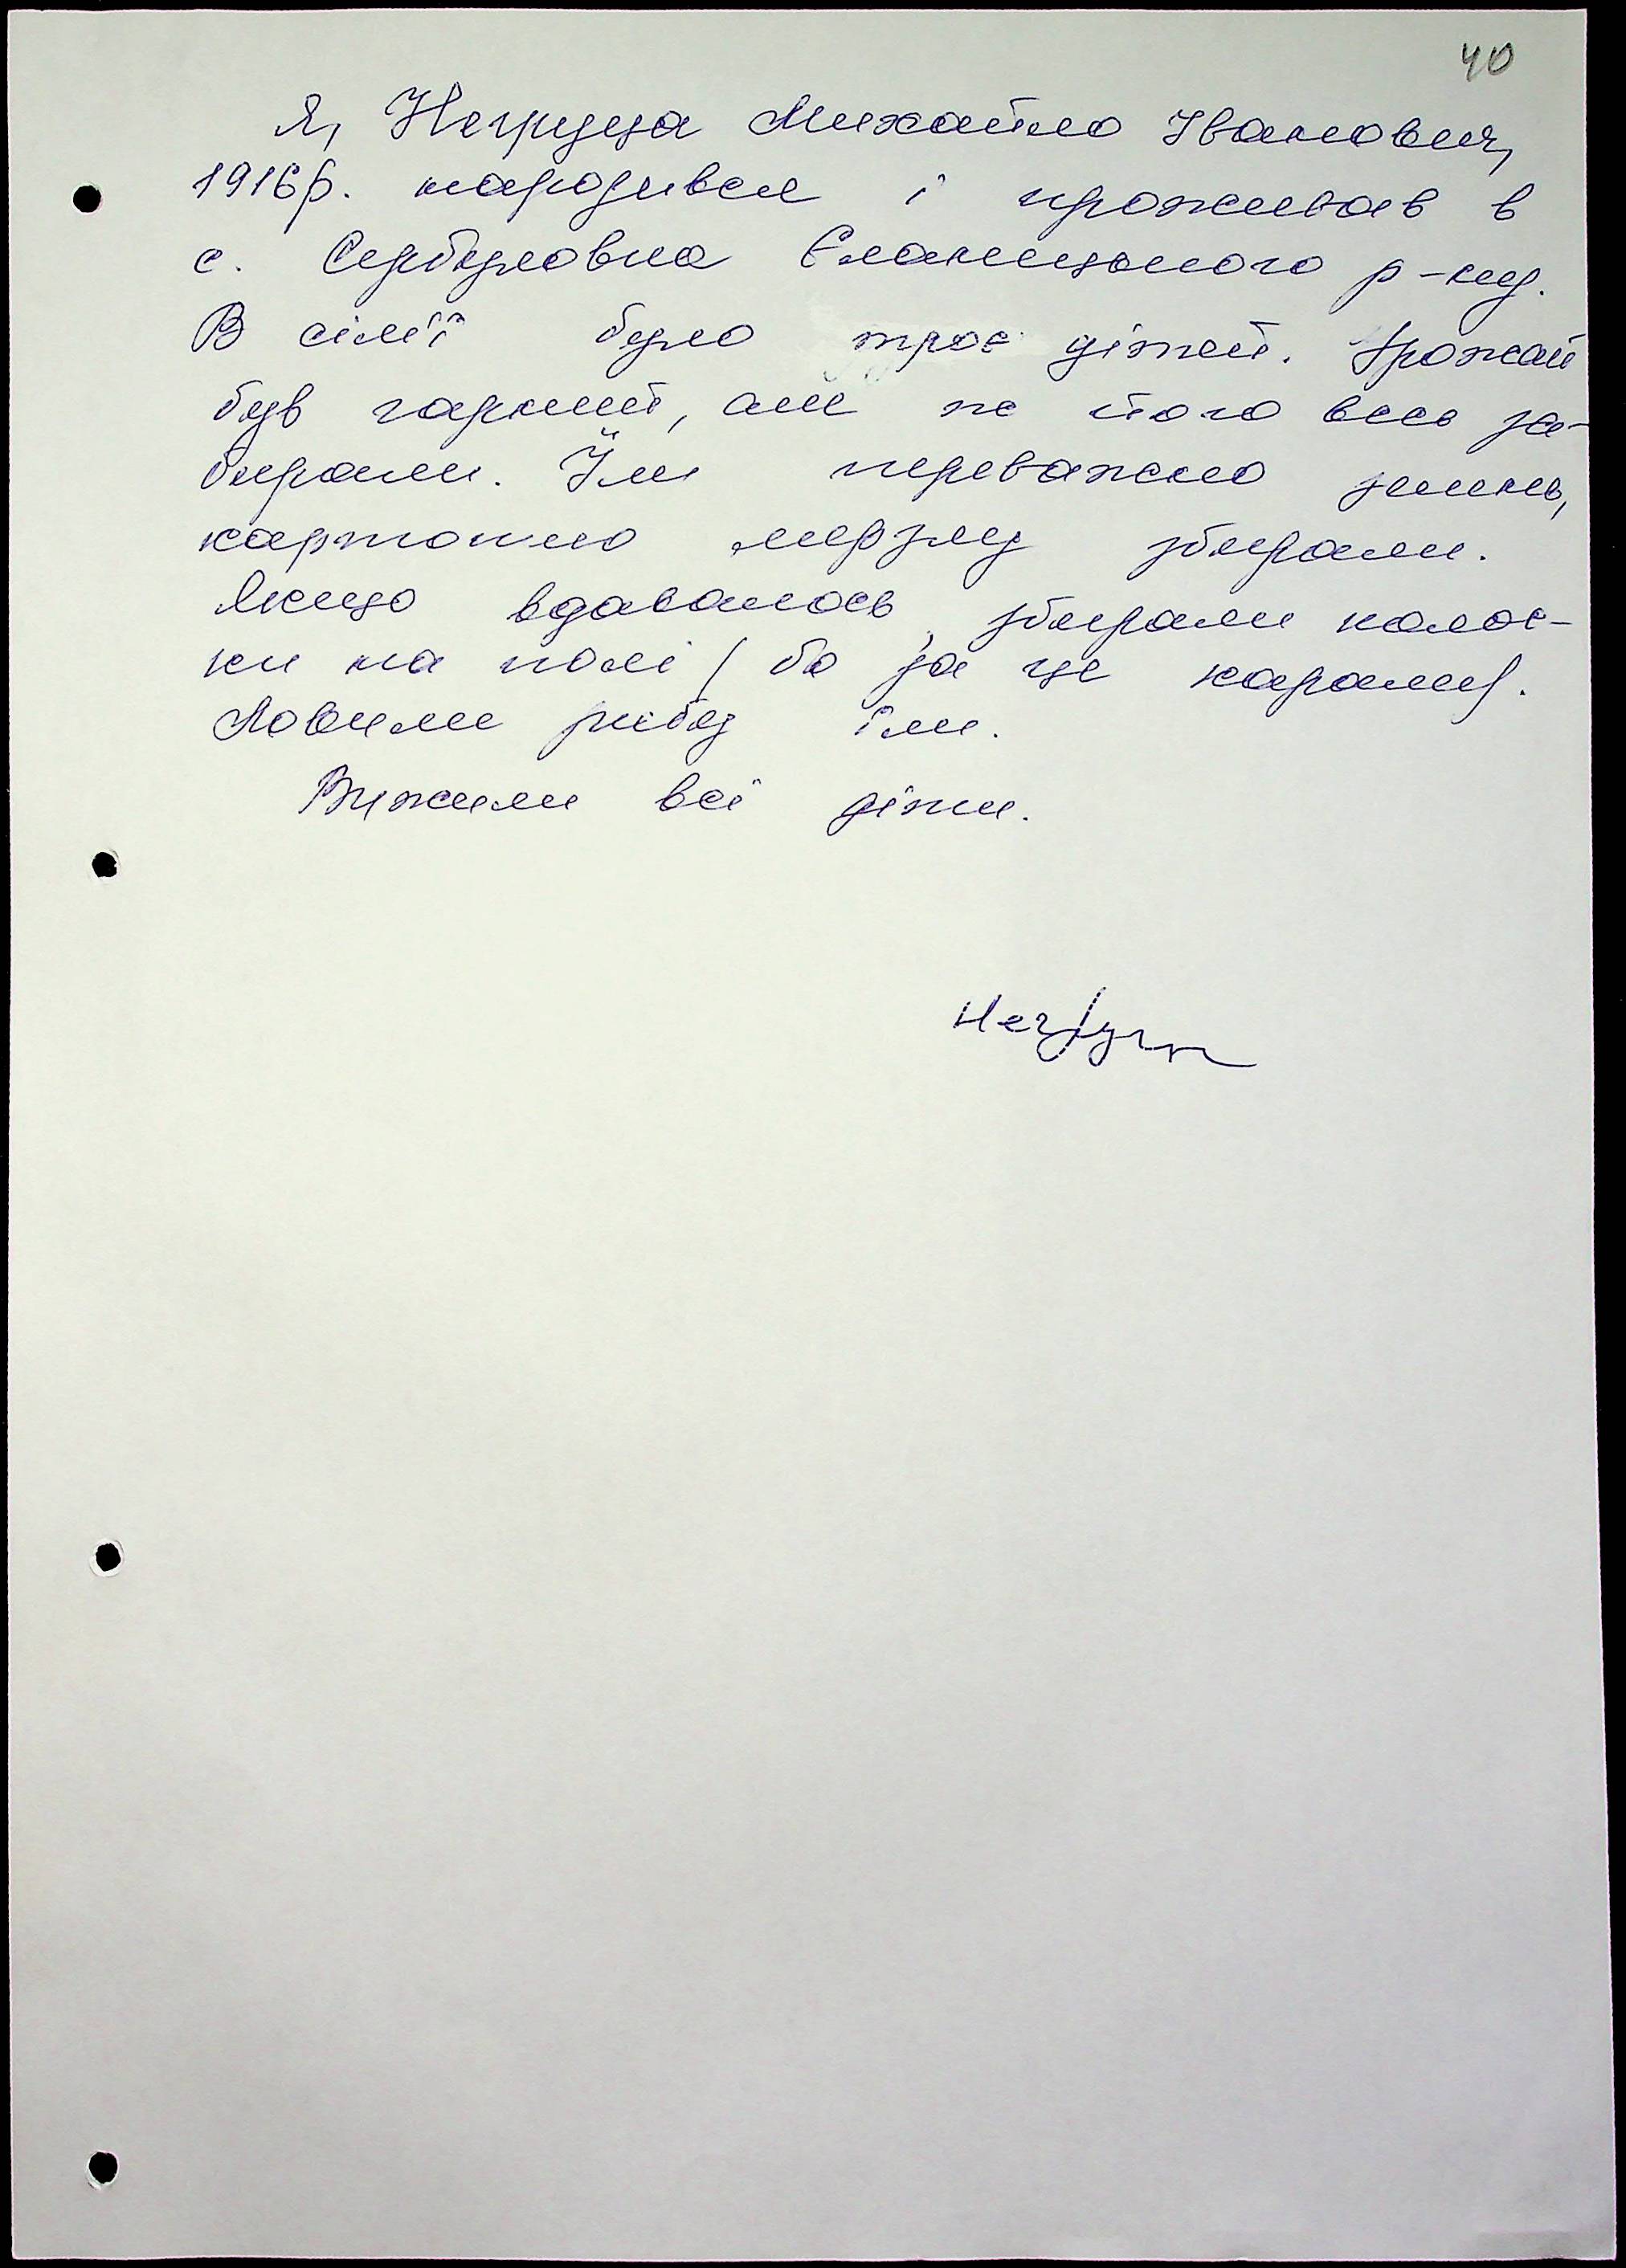 40
Я, Негруца Михайло Іванович,
1916р. народився і проживав в
с. Сербуловка Єланецького р-ну.
В сім'ї було троє дітей. Урожай
був гарний, але ж його весь за-
бирали. Їли переважно зелень,
картоплю мерзлу збирали.
Якщо вдавалось, збирали колос-
ки на полі (бо за це карали).
Ловили рибу їли.
Вижили всі діти.